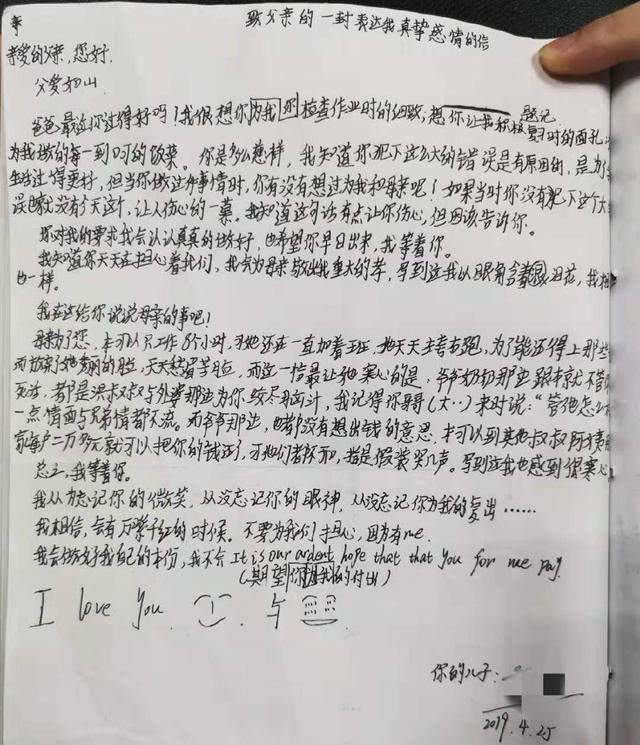 致父亲的一封表达我真挚感情的信
亲爱的父亲,您好.
父爱如山
爸爸最近你过得好吗!我很想你为我检查作业时的细致,想你让我积极复习时的面孔
为我做的每一到可的饭菜。你是多么慈祥,我知道你犯下这么大的错误是有原因的,是为了
生活过得更好,但当你做这件事情时,你有没有想过为我和母亲呢!如果当时你没有犯下这个大
误也就没有今天这个,让人伤心的一幕。我知道这句话有点让你伤心,但因该告诉你。
你对我的要求我会认认真真的做好,也希望你早日出来,我等着你。
我知道你天天在担心着我们,我会为母亲做出我重大的孝,写到这我以眼角含着泪花,我相
也一样。
我在这给你说说母亲的事吧!
母亲为了您,本可以只工作8个小时,可她还在一直加着班,她天天去奔跑,为了能还得上那些
而放弃了她美丽的脸,天天愁眉苦脸,而这一信最让她寒心的是,爷爷奶奶那边跟本就不管
死活,都是洪叔叔与外婆那边为你绞尽脑汁,我记得你哥哥(大‥)来时说:“管他怎么
一点情面与兄弟情都不流。而爷爷那边,也都没有想出钱的意思,本可以到其他叔叔阿姨
家每户二万多元就可以把你的钱还了,可他们都不加,指是假装哭几声。写到这我也感到很寒心
总之,我等着你。
我从为忘记你的微笑,从没忘记你的眼神,从没忘记你为我的复出……
我相信,会有万紫千红的时候。不要为我们担心,因为有me.
我会做好我自己的本份,我不会It is our ardent hope that that you for me pay.
(期望你对我的付出)
I love you.
你的儿子:
2019.4.25